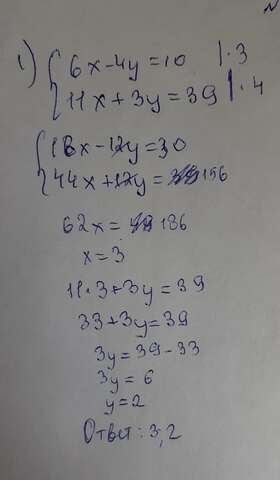 1) 6x-4y=10 |·3
11x+3y=39 |·4
18x-12y=30
44x+12y=156
62x=186
x=3
11·3+3y=39
33+3y=39
3y=39-33
3y=6
y=2
Ответ: 3,2